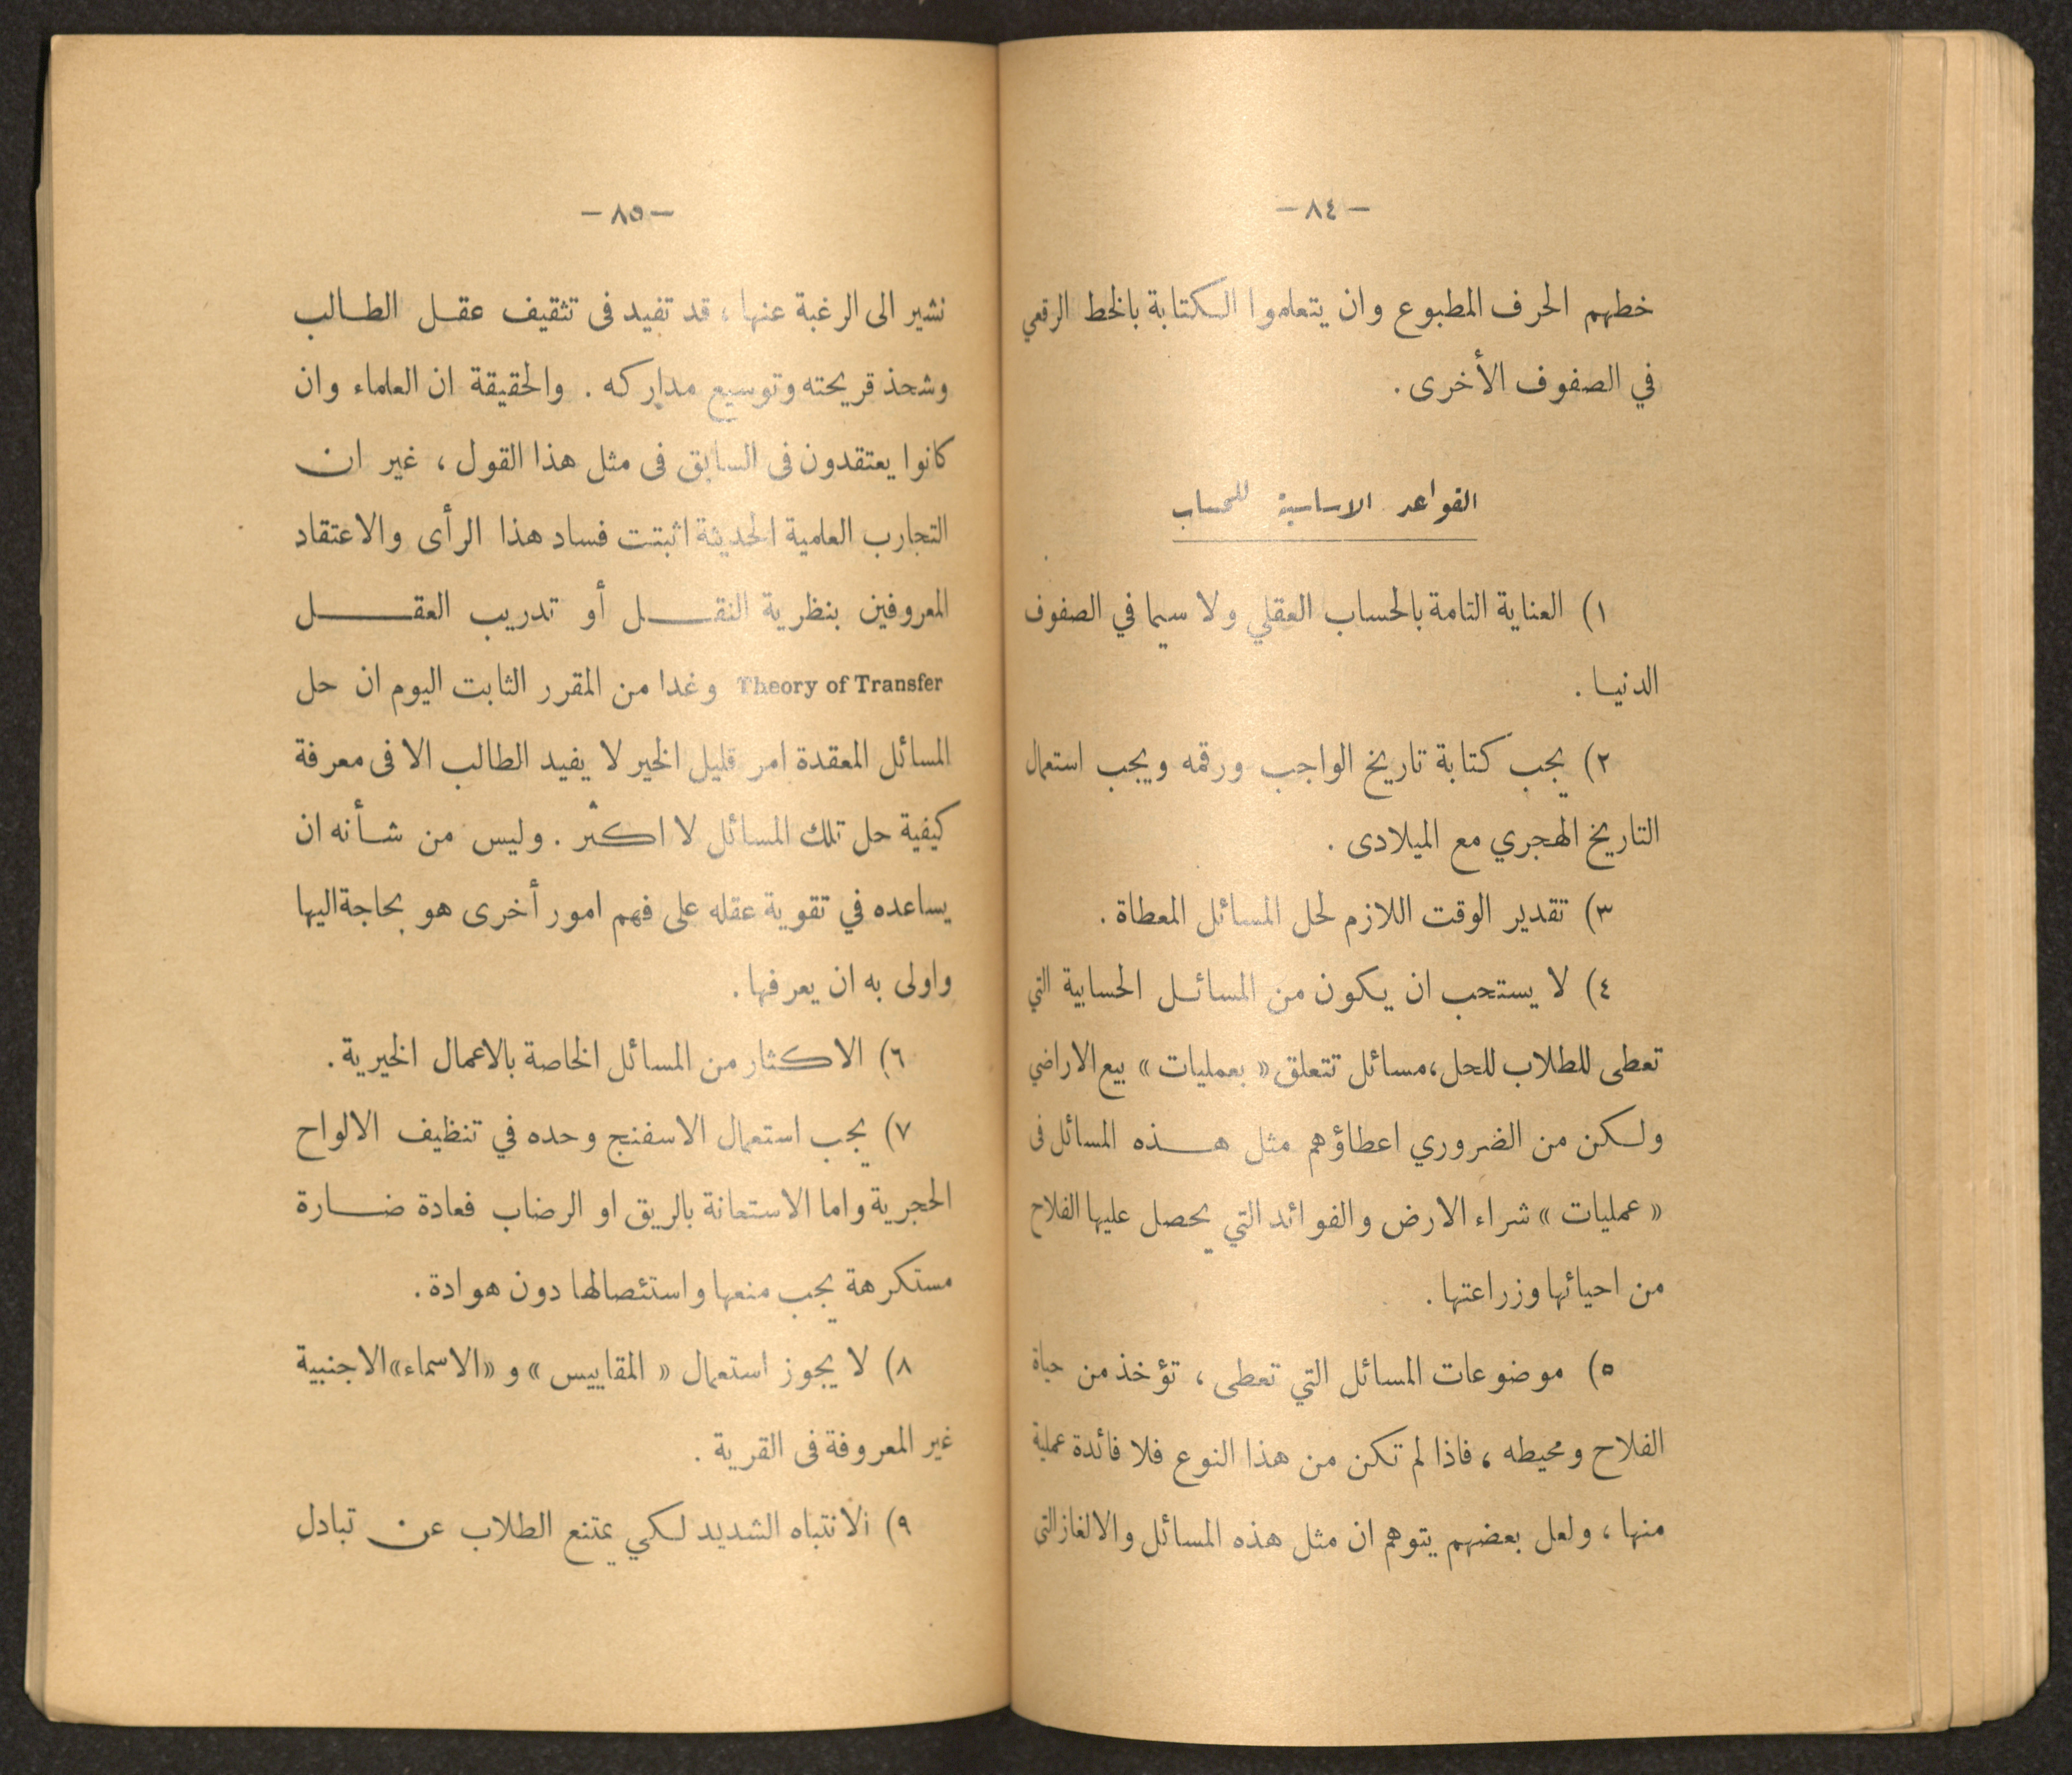 — ٨٤ —
خطهم الحرف المطبوع وان يتعلموا الكتابة بالخط الرقعي
في الصفوف الأخرى .
القواعد الاساسية للحساب
١) العناية التامة بالحساب العقلي ولا سيما في الصفوف
الدنيا .
٢) يجب كتابة تاريخ الواجب ورقمه ويجب استعمال
التاريخ الهجري مع الميلادى .
٣) تقدير الوقت اللازم لحل المسائل المعطاة .
٤) لا يستحب ان يكون من المسائل الحسابية التي
تعطى للطلاب للحل، مسائل تتعلق « بعمليات » بيع الاراضي
ولكن من الضروري اعطاؤهم مثل هذه المسائل فى
« عمليات » شراء الارض والفوائد التي يحصل عليها الفلاح
من احيائها وزراعتها .
٥) موضوعات المسائل التي تعطى ، تؤخذ من حياة
الفلاح ومحيطه ، فاذا لم تكن من هذا النوع فلا فائدة عملية
منها ، ولعل بعضهم يتوهم ان مثل هذه المسائل والالغاز التى
— ٨٥ —
نشير الى الرغبة عنها ، قد تفيد فى تثقيف عقل الطالب
وشحذ قريحته وتوسيع مداركه . والحقيقة ان العلماء وان
كانوا يعتقدون فى السابق فى مثل هذا القول ، غير ان
التجارب العلمية الحديثة اثبتت فساد هذا الرأى والاعتقاد
المعروفين بنظرية النقل أو تدريب العقل
Theory of Transfer وغدا من المقرر الثابت اليوم ان حل
المسائل المعقدة امر قليل الخير لا يفيد الطالب الا فى معرفة
كيفية حل تلك المسائل لا اكثر . وليس من شأنه ان
يساعده في تقوية عقله على فهم امور أخرى هو بحاجة اليها
واولى به ان يعرفها .
٦) الاكثار من المسائل الخاصة بالاعمال الخيرية .
٧) يجب استعمال الاسفنج وحده في تنظيف الالواح
الحجرية واما الاستعانة بالريق او الرضاب فعادة ضارة
مستكرهة يجب منعها واستئصالها دون هوادة .
٨) لا يجوز استعمال « المقاييس » و «الاسماء» الاجنبية
غير المعروفة فى القرية .
٩) الانتباه الشديد لكي يمتنع الطلاب عن تبادل